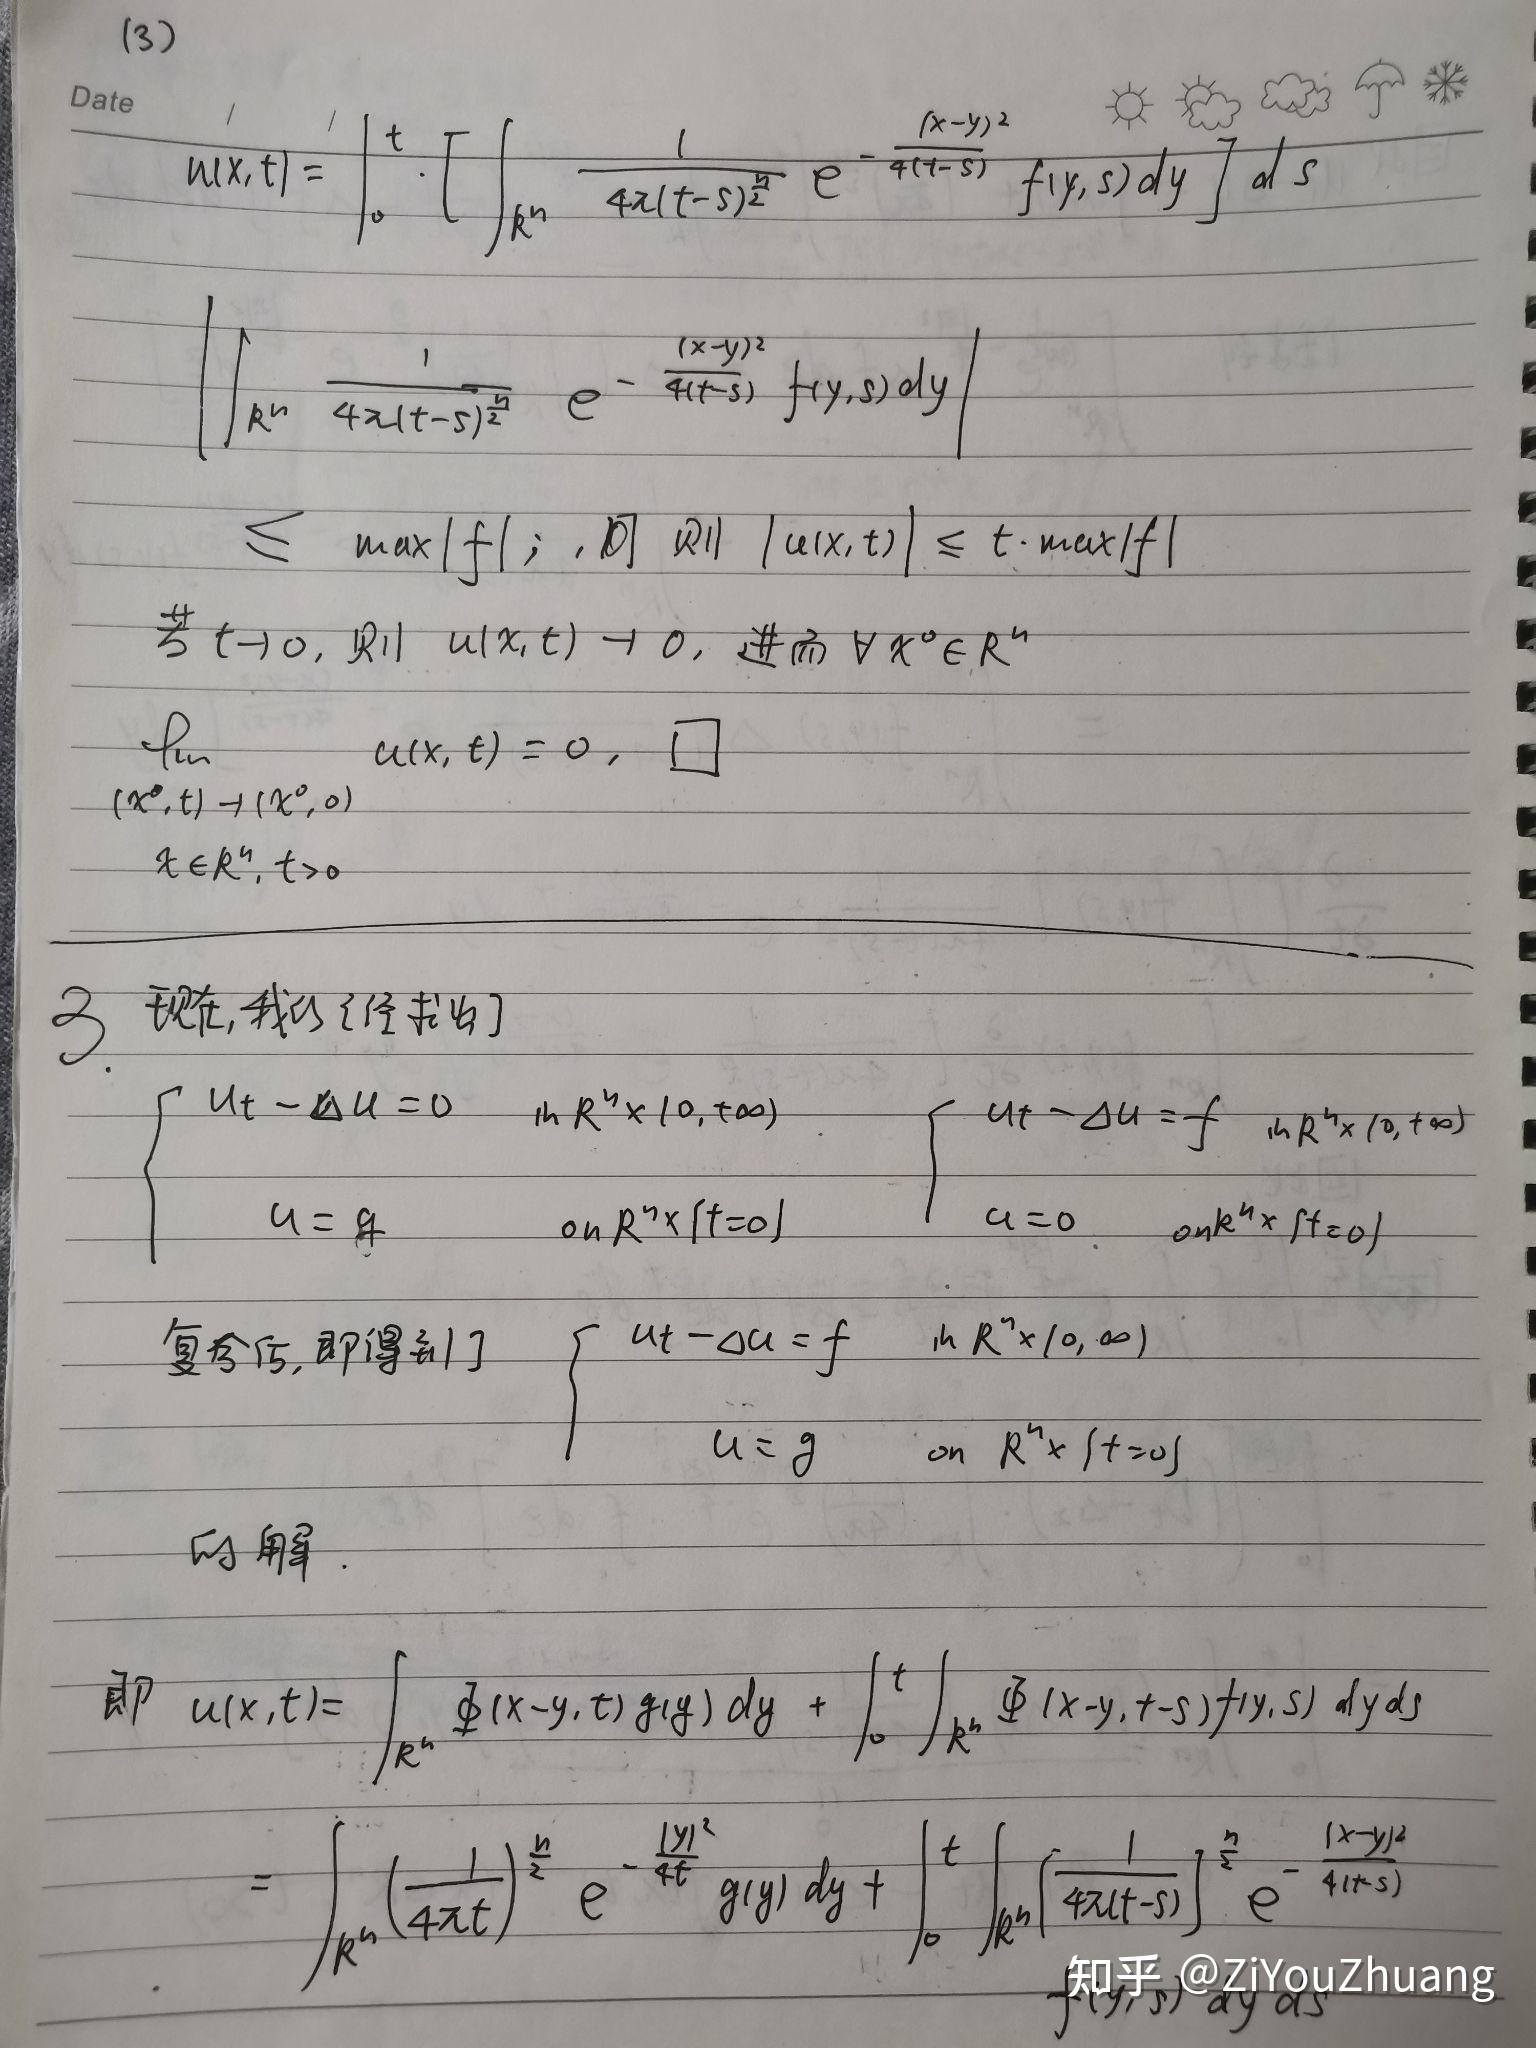 (3)
Date / /
u(x,t) = ∫₀ᵗ · [ ∫_{Rⁿ} 1/(4π(t-s)^{n/2}) e^{-(x-y)²/(4(t-s))} f(y,s) dy ] ds
| ∫_{Rⁿ} 1/(4π(t-s)^{n/2}) e^{-(x-y)²/(4(t-s))} f(y,s) dy |
≤ max|f| ; , 则 |u(x,t)| ≤ t·max|f|
当 t→0, 则 u(x,t) → 0, 进而 ∀ x⁰ ∈ Rⁿ
lim u(x,t) = 0, □
(x⁰,t)→(x⁰,0)
x∈Rⁿ, t>0
3. 现在,我们已经求出了
{ u_t - Δu = 0 in Rⁿ×(0,+∞) { u_t - Δu = f in Rⁿ×(0,+∞)
u = g on Rⁿ×{t=0} u = 0 on Rⁿ×{t=0}
复合后,即得到了 { u_t - Δu = f in Rⁿ×(0,∞)
u = g on Rⁿ×{t=0}
的解.
即 u(x,t) = ∫_{Rⁿ} Φ(x-y,t) g(y) dy + ∫₀ᵗ ∫_{Rⁿ} Φ(x-y,t-s) f(y,s) dy ds
= ∫_{Rⁿ} (1/(4πt))^{n/2} e^{-|y|²/(4t)} g(y) dy + ∫₀ᵗ ∫_{Rⁿ} [1/(4π(t-s))]^{n/2} e^{-|x-y|²/(4(t-s))}
f(y,s) dy ds
知乎 @ZiYouZhuang